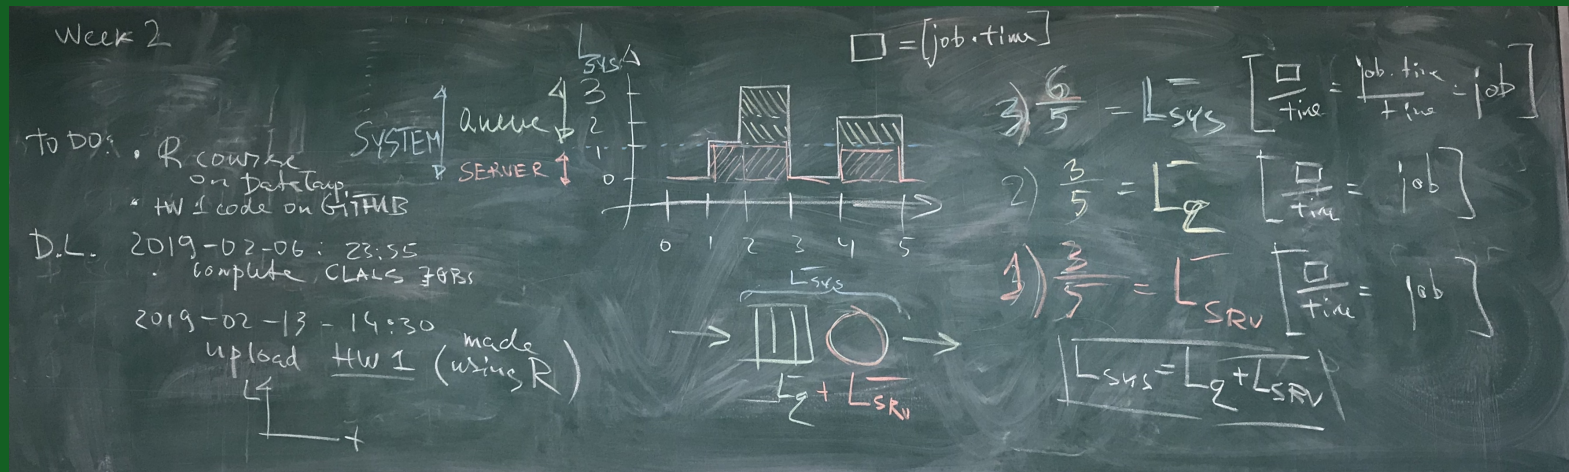 Week 2
TO DO:
• R course
on DataCamp
• HW 1 code on GITHUB
D.L. 2019-02-06: 23:55
• complete CLALS
2019-02-13-14:30
upload HW 1 (made using R)
L
t
SYSTEM
Queue
SERVER
L SYS
3
2
1
0
0 1 2 3 4 5
L SYS
Lq + L SRV
□ = [job·time]
3) 6/5 = L SYS [□/time = job·time/time = job]
2) 3/5 = Lq [□/time = job]
1) 3/5 = L SRV [□/time = job]
L SYS = Lq + L SRV